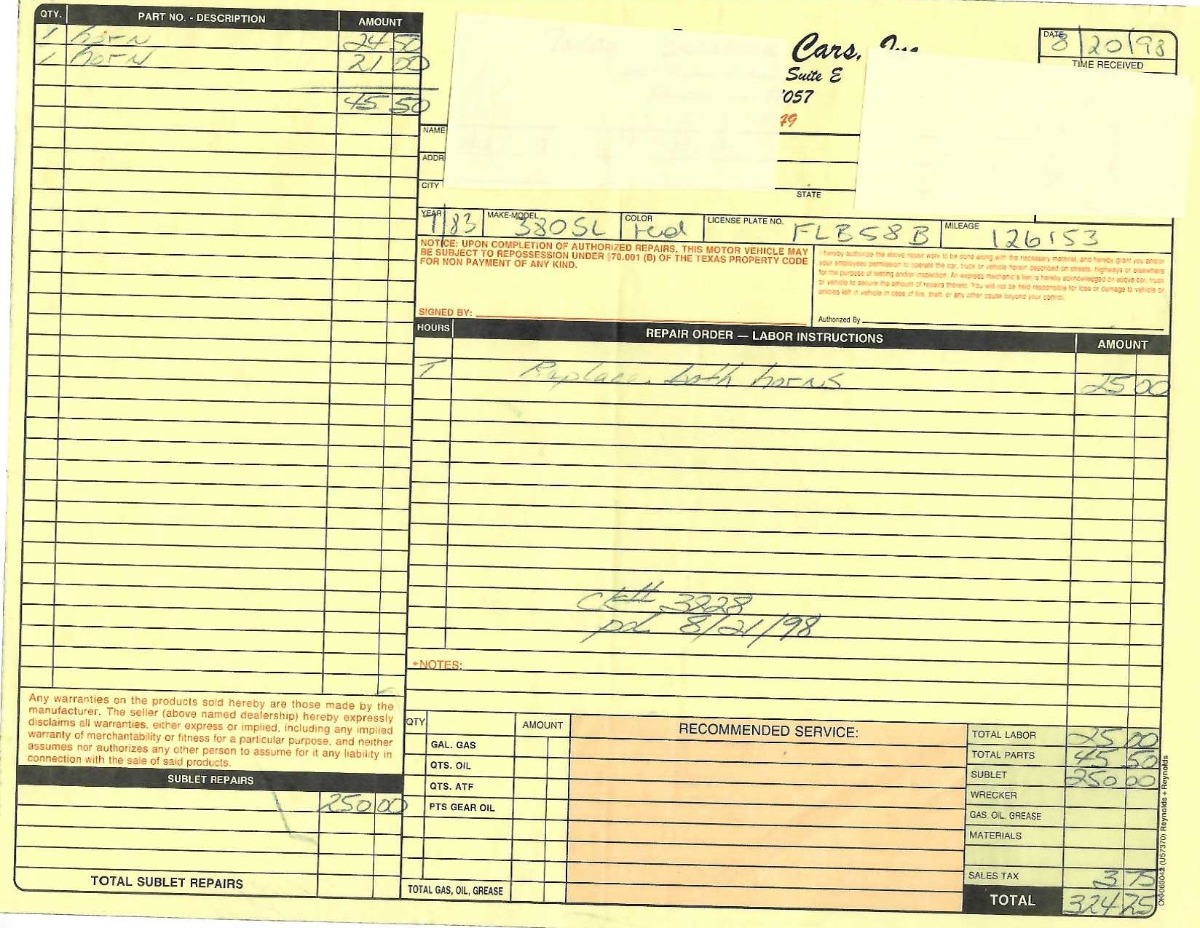 QTY. PART NO. - DESCRIPTION AMOUNT
1 horn 24 50
1 horn 21 00
45 50
Cars, Inc
Suite E
7057
79
DATE 8/20/98
TIME RECEIVED
NAME
ADDR
CITY
STATE
YEAR 83 MAKE-MODEL 380SL COLOR red LICENSE PLATE NO. FLB58B MILEAGE 126153
NOTICE: UPON COMPLETION OF AUTHORIZED REPAIRS, THIS MOTOR VEHICLE MAY
BE SUBJECT TO REPOSSESSION UNDER §70.001 (B) OF THE TEXAS PROPERTY CODE
FOR NON PAYMENT OF ANY KIND.
SIGNED BY:
I hereby authorize the above repair work to be done along with the necessary material, and hereby grant you and/or
your employees permission to operate the car, truck or vehicle herein described on streets, highways or elsewhere
for the purpose of testing and/or inspection. An express mechanic's lien is hereby acknowledged on above car, truck
or vehicle to secure the amount of repairs thereto. You will not be held responsible for loss or damage to vehicle or
articles left in vehicle in case of fire, theft, or any other cause beyond your control.
Authorized By
HOURS REPAIR ORDER — LABOR INSTRUCTIONS AMOUNT
Replace both horns 25 00
ck# 3828
pd 8/21/98
*NOTES:
Any warranties on the products sold hereby are those made by the
manufacturer. The seller (above named dealership) hereby expressly
disclaims all warranties, either express or implied, including any implied
warranty of merchantability or fitness for a particular purpose, and neither
assumes nor authorizes any other person to assume for it any liability in
connection with the sale of said products.
SUBLET REPAIRS
250 00
TOTAL SUBLET REPAIRS
QTY AMOUNT
GAL. GAS
QTS. OIL
QTS. ATF
PTS GEAR OIL
TOTAL GAS, OIL, GREASE
RECOMMENDED SERVICE:
TOTAL LABOR 25 00
TOTAL PARTS 45 50
SUBLET 250 00
WRECKER
GAS, OIL, GREASE
MATERIALS
SALES TAX 3 75
TOTAL 324 25
Reynolds + Reynolds